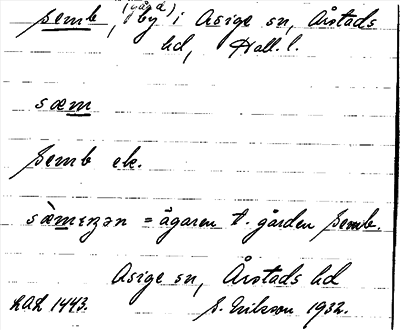 Semb, (gård) by i Asige sn, Årstads
hd, Hall. l.
sæm
Semb ek.
sæ̀mɛɳən = ägaren t. gården Semb.
Asige sn, Årstads hd
LAL 1443. S. Eriksson 1932.